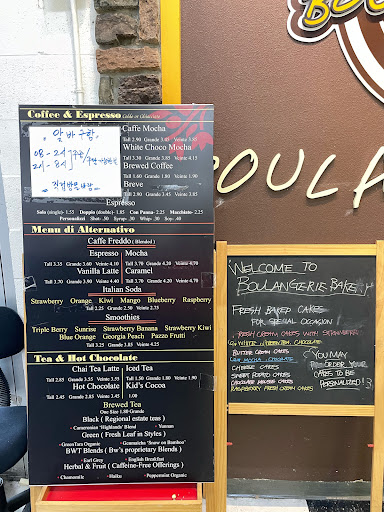 BOULA
Coffee & Espresso Cable or Chlorotone
. 알바구함.
Caffe Mocha
Tall 2.90 Grande 3.45 Vente 3.85
White Choco Mocha
Tall 3.30 Grande 3.85 Vente 4.15
Brewed Coffee
Tall 1.60 Grande 1.80 Vente 1.90
Breve
Espresso
Solo (single)- 1.55 Doppio (double)- 1.85 Con Panna- 2.25 Macchiato- 2.25
Personalizi Shot- .50 Syrup- .30 Whip- .30 Soy- .40
Menu di Alternativo
Caffe Freddo ( Blended )
Espresso Mocha
Tall 3.25 Grande 3.60 Veinte 4.10 Tall 3.70 Grande 4.20 Veinte 4.70
Vanilla Latte Caramel
Tall 3.70 Grande 3.90 Veinte 4.40 Tall 3.70 Grande 4.20 Veinte 4.70
Italian Soda
Strawberry Orange Kiwi Mango Blueberry Raspberry
Tall 2.25 Grande 2.50 Vente 2.95
Smoothies
Triple Berry Sunrise Strawberry Banana Strawberry Kiwi
Blue Orange Georgia Peach Pazzo Frutti
Tall 3.25 Grande 3.95 Vente 4.25
Tea & Hot Chocolate
Chai Tea Latte Iced Tea
Tall 2.85 Grande 3.55 Veinte 3.55 Tall 1.50 Grande 1.80 Veinte 1.90
Hot Chocolate Kid's Cocoa
Tall 2.45 Grande 2.85 Veinte 3.45 1.00
Brewed Tea
One Size 1.80 Grande
Black ( Regional estate teas )
· Cameronian 'Highlands' Blend · Yunnan
Green ( Fresh Leaf in Styles )
· GreenTara Organic · Genmaicha 'Snow on Bamboo'
BWT Blends ( Bw's proprietary Blends )
· Earl Grey · English Breakfast
Herbal & Fruit ( Caffeine-Free Offerings )
· Chamomile · Haiku · Peppermint Organic
WELCOME TO
BOULANGERIE BAKERY
FRESH BAKED CAKES
FOR SPECIAL OCCASION
FRESH CREAM CAKES WITH STRAWBERRY
WHITE GREEN TEA, CHOCOLATE
BUTTER CREAM CAKES
MOCHA, CHOCOLATE
CHEESE CAKES
SWEET POTATO CAKES
CHOCOLATE MOUSSE CAKES
RASPBERRY FRESH CREAM CAKES
YOU MAY
PRE ORDER YOUR
CAKES TO BE
PERSONALIZED!